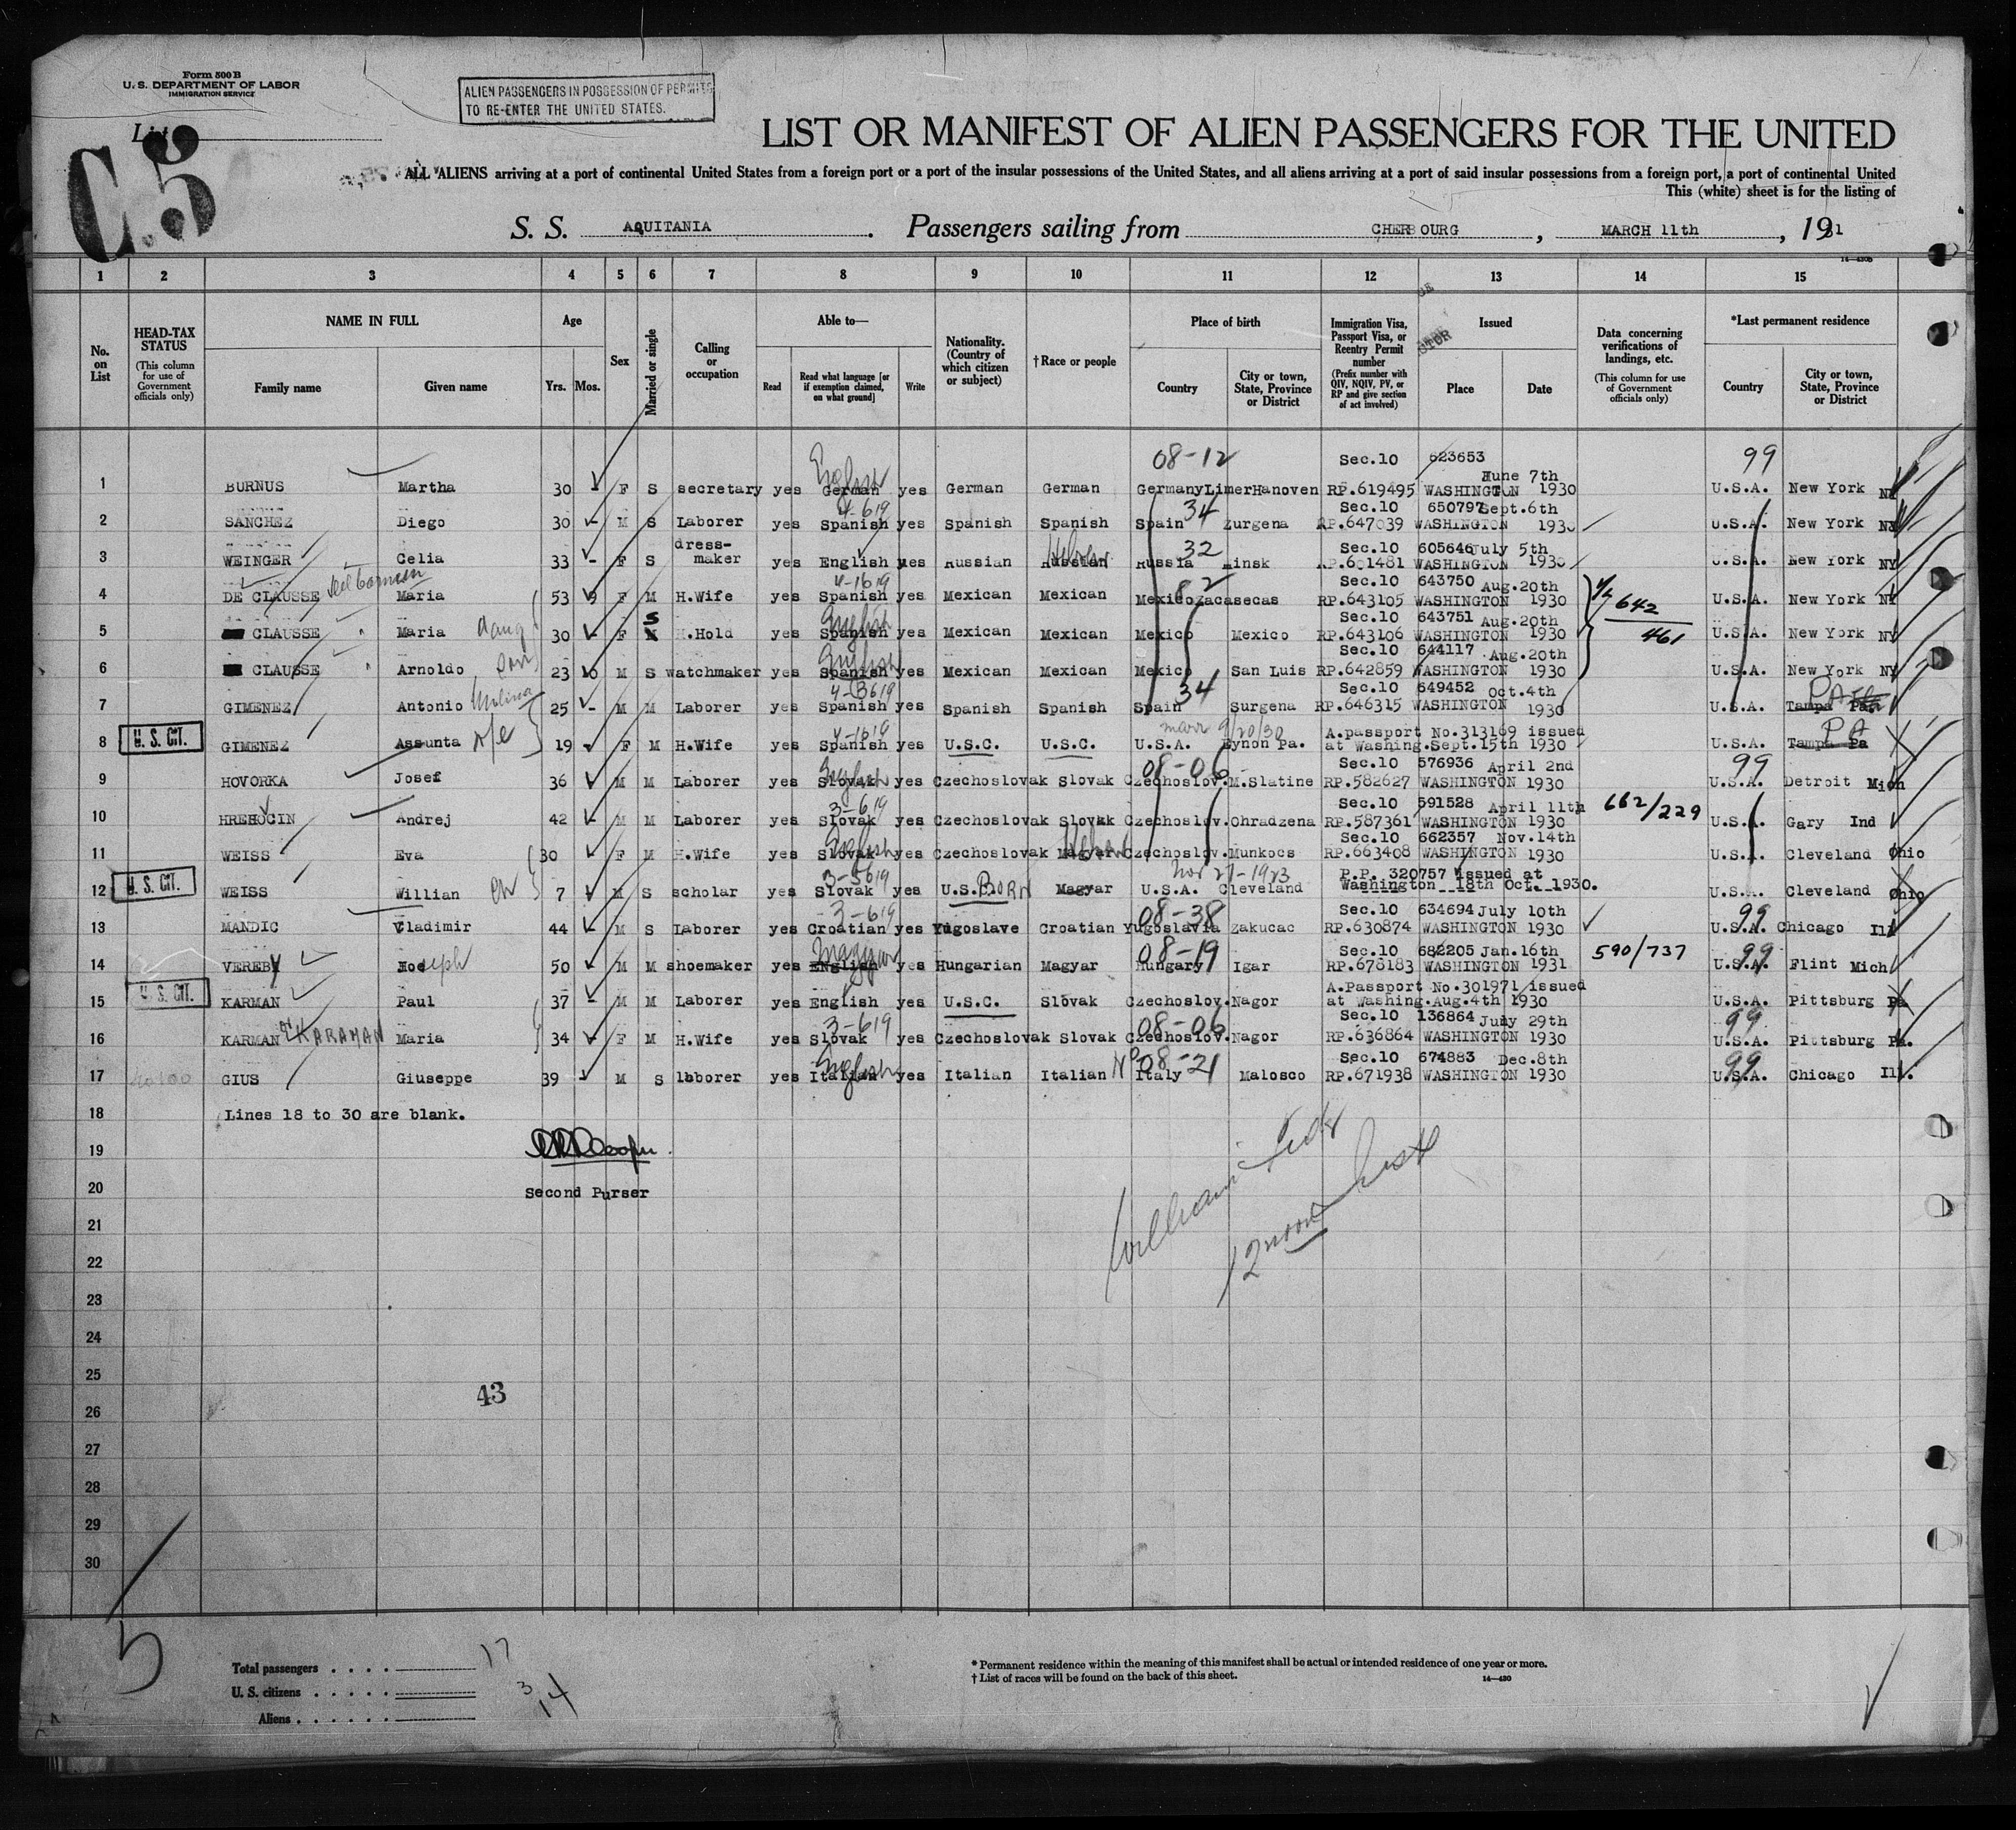 Form 500 B
U. S. DEPARTMENT OF LABOR
IMMIGRATION SERVICE
ALIEN PASSENGERS IN POSSESSION OF PERMITS
TO RE-ENTER THE UNITED STATES.
List
C.5
LIST OR MANIFEST OF ALIEN PASSENGERS FOR THE UNITED
ALL ALIENS arriving at a port of continental United States from a foreign port or a port of the insular possessions of the United States, and all aliens arriving at a port of said insular possessions from a foreign port, a port of continental United
This (white) sheet is for the listing of
S. S. AQUITANIA. Passengers sailing from CHERBOURG, MARCH 11th, 1931
14—430B
1 2 3 4 5 6 7 8 9 10 11 12 13 14 15
No. on List
HEAD-TAX STATUS (This column for use of Government officials only)
NAME IN FULL Family name Given name
Age Yrs. Mos.
Sex
Married or single
Calling or occupation
Able to— Read Read what language [or if exemption claimed, on what ground] Write
Nationality. (Country of which citizen or subject)
†Race or people
Place of birth Country City or town, State, Province or District
Immigration Visa, Passport Visa, or Reentry Permit number (Prefix number with QIV, NQIV, PV, or RP and give section of act involved)
Issued Place Date
Data concerning verifications of landings, etc. (This column for use of Government officials only)
*Last permanent residence Country City or town, State, Province or District
08-12 Sec.10 623653 99
1 BURNUS Martha 30 - F S secretary yes German English yes German German Germany LimerHanoven RP.619495 WASHINGTON June 7th 1930 U.S.A. New York NY
4-619 34 Sec.10 650797 Sept.6th
2 SANCHEZ Diego 30 - M S Laborer yes Spanish yes Spanish Spanish Spain Zurgena RP.647039 WASHINGTON 1930 U.S.A. New York NY
32 Sec.10 605646 July 5th
3 WEINGER Celia 33 - F S dress-maker yes English yes Russian Russian Hebrew Russia Minsk RP.601481 WASHINGTON 1930 U.S.A. New York NY
4-1619 82 Sec.10 643750 Aug.20th
4 DE CLAUSSE Maria 53 9 F M H.Wife yes Spanish yes Mexican Mexican Mexico Zacasecas RP.643105 WASHINGTON 1930 642/461 U.S.A. New York NY
Sec.10 643751 Aug.20th
5 CLAUSSE Maria daug 30 - F S H.Hold yes Spanish English yes Mexican Mexican Mexico Mexico RP.643106 WASHINGTON 1930 U.S.A. New York NY
Sec.10 644117 Aug.20th
6 CLAUSSE Arnoldo son 23 10 M S watchmaker yes Spanish English yes Mexican Mexican Mexico San Luis RP.642859 WASHINGTON 1930 U.S.A. New York NY
4-3619 34 Sec.10 649452 Oct.4th
7 GIMENEZ Antonio Molina 25 - M M Laborer yes Spanish yes Spanish Spanish Spain Surgena RP.646315 WASHINGTON 1930 U.S.A. Tampa PA
4-1619 marr 9/20/30 A.passport No.313169 issued
8 U. S. CIT. GIMENEZ Assunta 19 - F M H.Wife yes Spanish yes U.S.C. U.S.C. U.S.A. Eynon Pa. at Washing.Sept.15th 1930 U.S.A. Tampa Pa PA
08-06 Sec.10 576936 April 2nd 99
9 HOVORKA Josef 36 M M Laborer yes Slovak English yes Czechoslovak Slovak Czechoslov. M.Slatine RP.582627 WASHINGTON 1930 U.S.A. Detroit Mich
3-619 Sec.10 591528 April 11th 662/229
10 HREHOCIN Andrej 42 - M M Laborer yes Slovak yes Czechoslovak Slovkk Czechoslov. Ohradzena RP.587361 WASHINGTON 1930 U.S.A. Gary Ind
Sec.10 662357 Nov.14th
11 WEISS Eva 30 - F M H.Wife yes Slovak English yes Czechoslovak Magyar Hebrew Czechoslov. Munkocs RP.663408 WASHINGTON 1930 U.S.A. Cleveland Ohio
3-3619 Nov 27-1923 P.P. 320757 issued at
12 U. S. CIT. WEISS Willian Ch 7 M S scholar yes Slovak yes U.S. BORN Magyar U.S.A. Cleveland Washington 18th Oct. 1930. U.S.A. Cleveland Ohio
3-619 08-38 Sec.10 634694 July 10th 99
13 MANDIC Vladimir 44 - M S Laborer yes Croatian yes Yugoslave Croatian Yugoslavia Zakucac RP.630874 WASHINGTON 1930 U.S.A. Chicago Ill
08-19 Sec.10 682205 Jan.16th 590/737 99
14 VEREBY Joseph 50 - M M shoemaker yes English Magyar yes Hungarian Magyar Hungary Igar RP.678183 WASHINGTON 1931 U.S.A. Flint Mich
A.Passport No.301971 issued
15 U. S. CIT. KARMAN Paul 37 - M M Laborer yes English yes U.S.C. Slovak Czechoslov. Nagor at Washing.Aug.4th 1930 U.S.A. Pittsburg Pa
3-619 08-06 Sec.10 136864 July 29th 99
16 KARMAN or KARAMAN Maria 34 - F M H.Wife yes Slovak yes Czechoslovak Slovak Czechoslov. Nagor RP.636864 WASHINGTON 1930 U.S.A. Pittsburg Pa.
08-21 Sec.10 674883 Dec.8th 99
17 GIUS Giuseppe 39 - M S lbborer yes Italian English yes Italian Italian N Italy Malosco RP.671938 WASHINGTON 1930 U.S.A. Chicago Ill.
18 Lines 18 to 30 are blank.
19
20 Second Purser
21
22
23
24
25
43
26
27
28
29
30
William
12 noon
5
Total passengers . . . . 17
U. S. citizens . . . . . 3
Aliens . . . . . . 14
* Permanent residence within the meaning of this manifest shall be actual or intended residence of one year or more.
† List of races will be found on the back of this sheet.
14—430